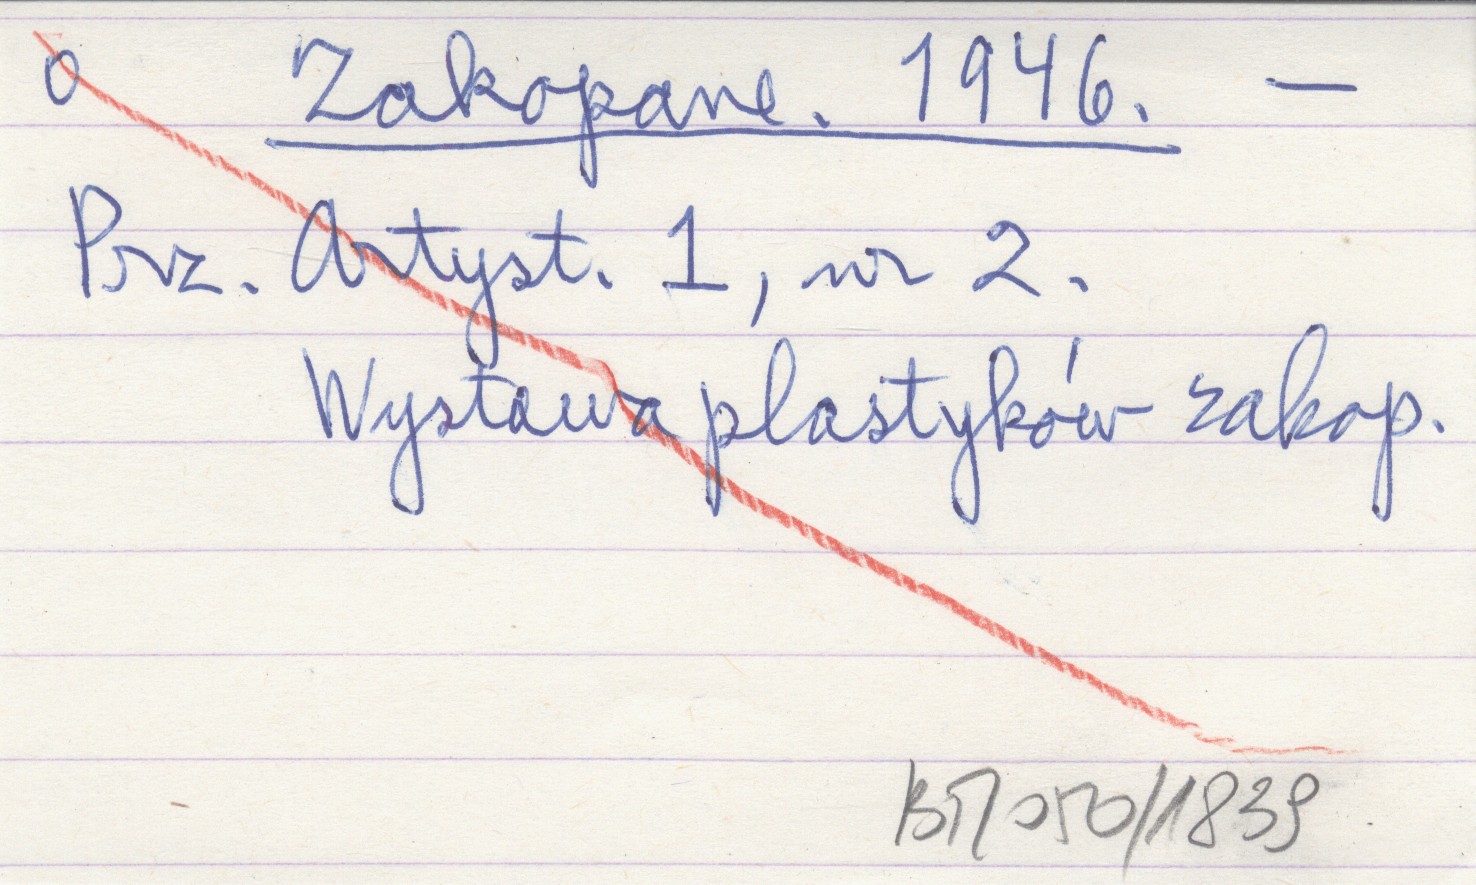 o Zakopane. 1946. —
Prz. Artyst. 1, nr 2.
Wystawa plastyków zakop.
050/1839